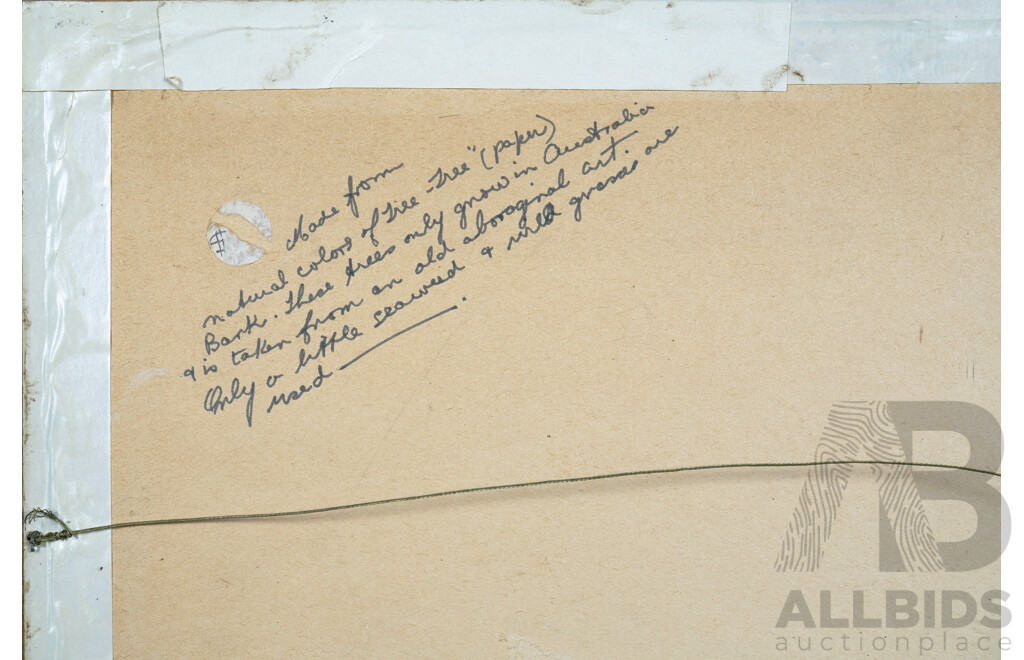 Made from
natural colors of Tree -Tree" (paper)
Bark. These trees only grow in Australia
& is taken from an old aboroginal art.
Only a little seaweed & wild grasses are
used.
$
ALLBIDS
auctionplace
AB